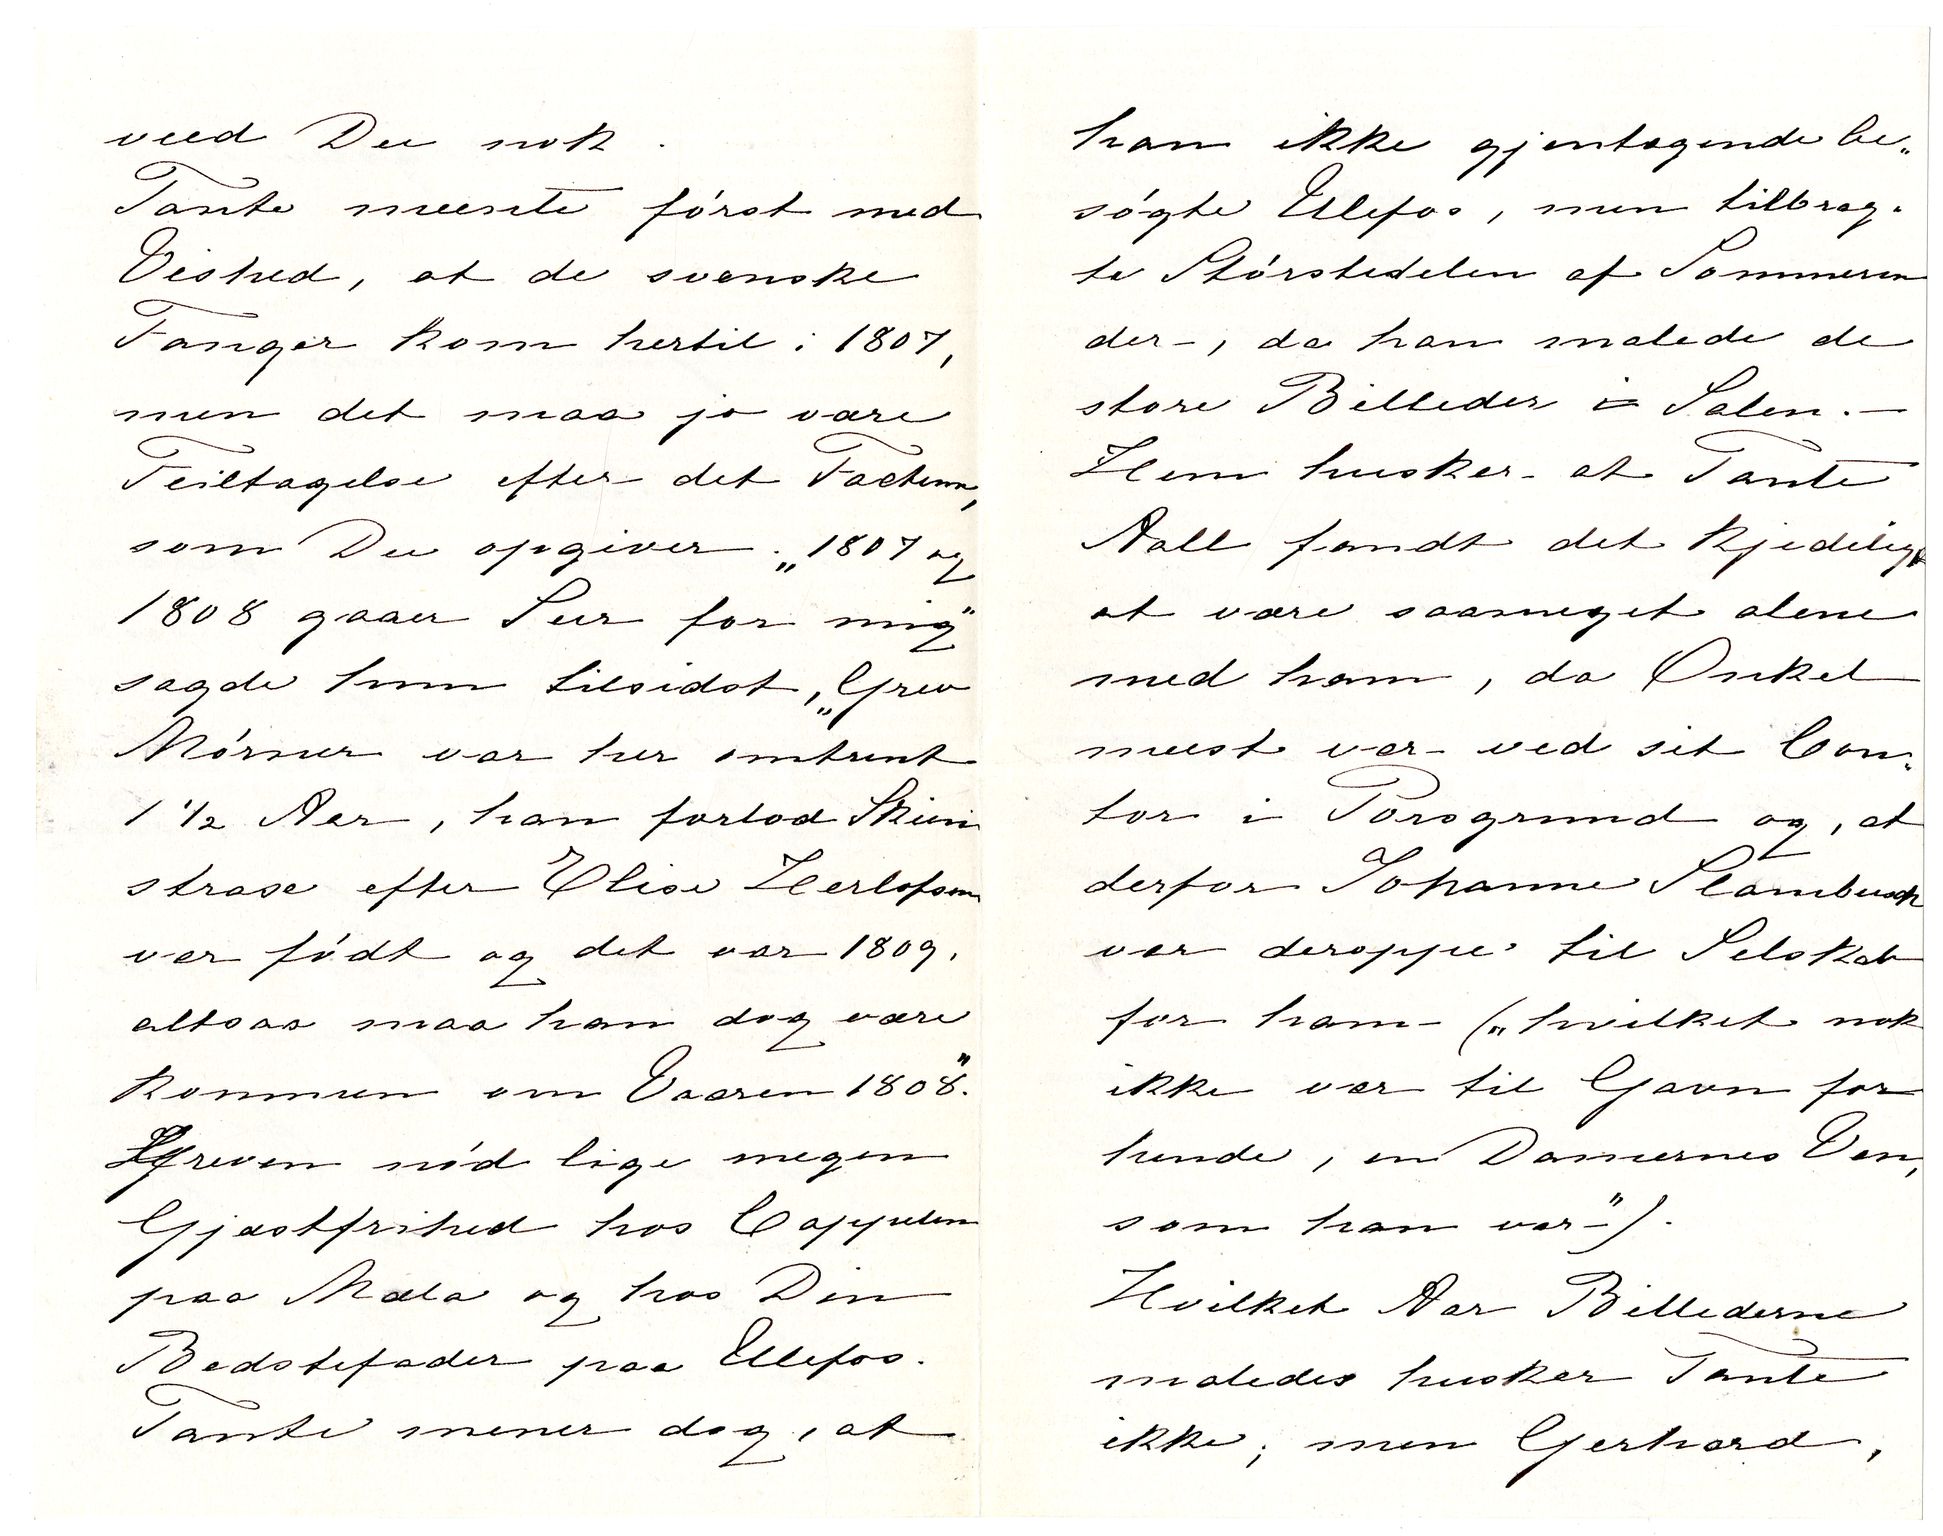 veed Du nok.
Tante meente först med
Vished, at de svenske
Fanger kom hertil i 1807,
men det maa jo være
Feiltagelse efter det Factum,
som Du opgiver. „1807 og
1808 gaaer Sur for mig"
sagde hun tilsidst, „Grev
Mörner var her omtrent
1 1/2 Aar, han forlod Skien
strax efter Elise Herlofson
var födt og det var 1809.
altsaa maa han dog være
kommen om Vaaren 1808".
Greven nöd lige megen
Gjæstfrihed hos Cappelen
paa Mæla og hos Din
Bedstefader paa Ulefos.
Tante mener dog, at
han ikke gjentagende be„
sögte Ulefos, men tilbrag„
te Störstedelen af Sommeren
der, da han malede de
store Billeder i Salen. —
Hun husker at Tante
Aall fandt det kjedeligt
at være saameget alene
med ham, da Onkel
meest var ved sit Con„
tor i Porsgrund og, at
derfor Johanne Stambusch
var deroppe til Selskab
for ham („hvilket nok
ikke var til Gavn for
hende, en Damernes Ven,
som han var").
Hvilket Aar Billederne
maledes husker Tante
ikke; men Gerhard,